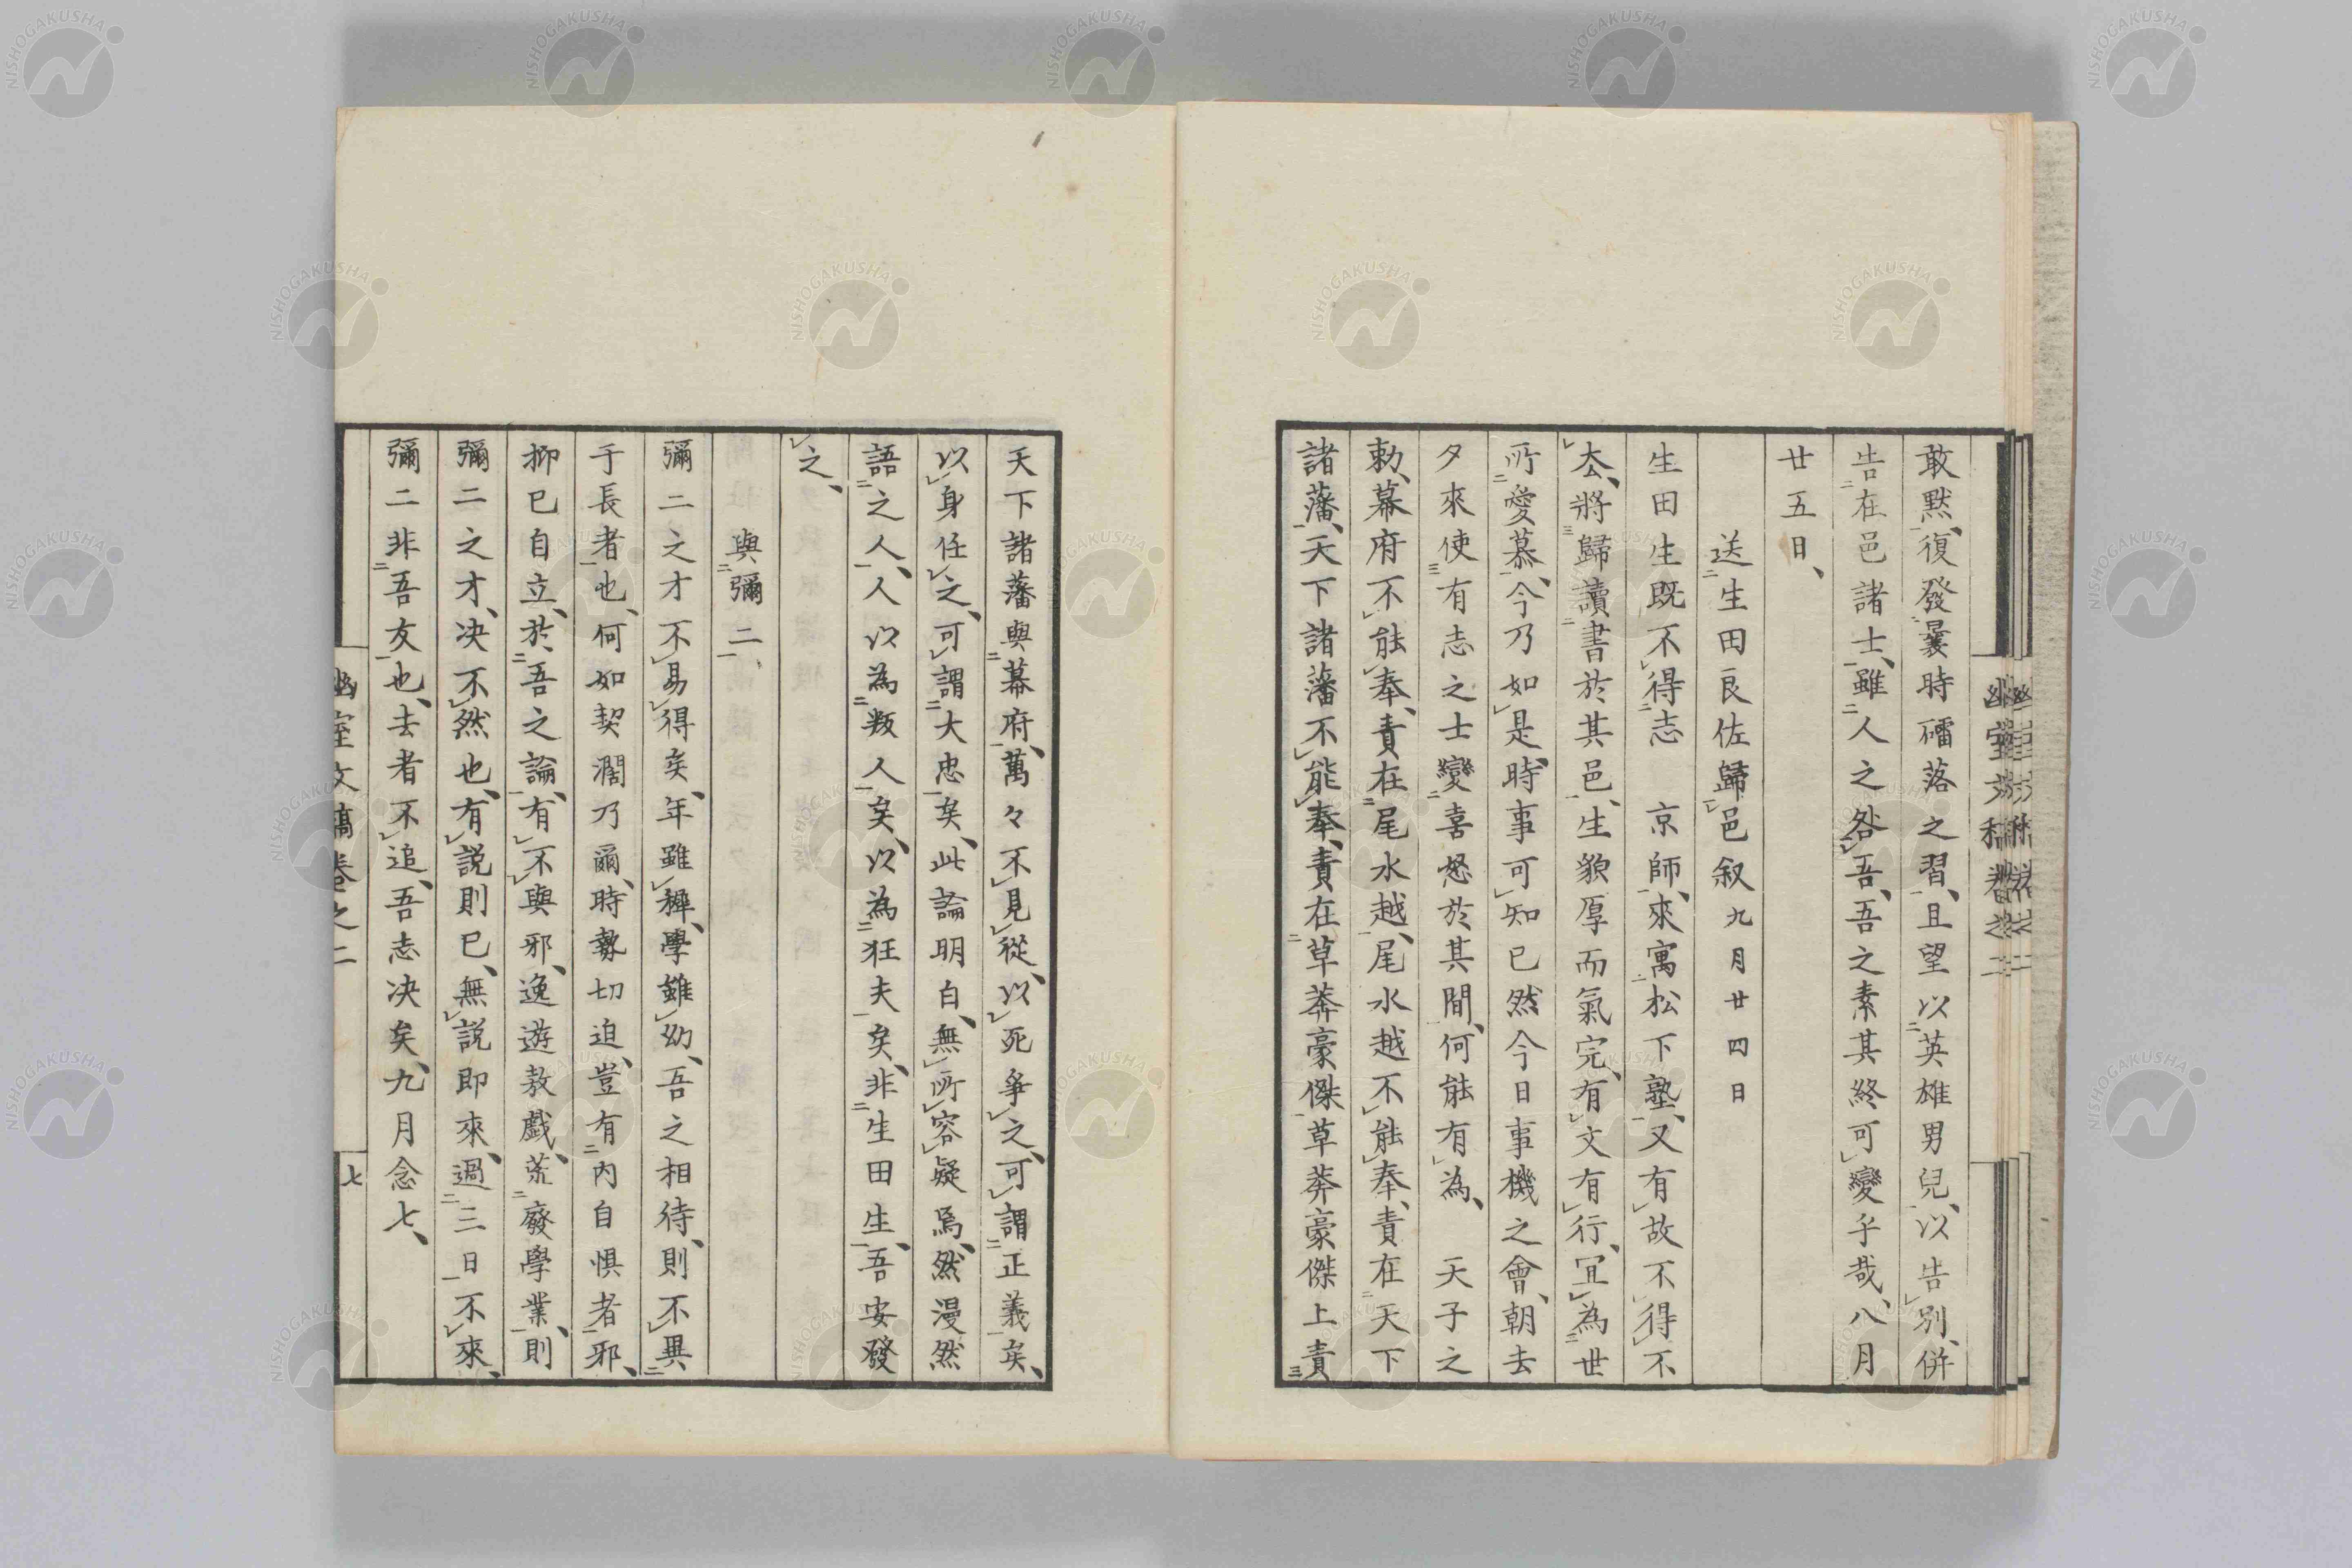 敢黙、復發曩時礌落之習、且望以英雄男兒、以告別、併
告在邑諸士、雖人之咎吾、吾之素其終可變乎哉、八月
廿五日、
送生田良佐歸邑叙九月廿四日
生田生既不得志 京師、來寓松下塾、又有故不得不
去、將歸讀書於其邑、生貌厚而氣完、有文有行、宜為世
所愛慕、今乃如是、時事可知已然今日事機之會、朝去
夕來使有志之士變喜怒於其間、何能有為、 天子之
勅、幕府不能奉、責在尾水越、尾水越不能奉、責在天下
諸藩、天下諸藩不能奉、責在草莽豪傑草莽豪傑上責
天下諸藩與幕府、萬々不見從、以死爭之、可謂正義矣、
以身任之、可謂大忠矣、此論明白、無所容疑焉、然漫然
語之人、人以為叛人矣、以為狂夫矣、非生田生、吾安發
之、
與彌二、
彌二之才不易得矣、年雖穉、學雖幼、吾之相待、則不異
于長者也、何如契濶乃爾、時勢切迫、豈有內自惧者邪、
抑已自立、於吾之論、有不與邪、逸遊敖戲、荒廢學業、則
彌二之才、决不然也、有說則已、無說即來、過三日不來、
彌二非吾友也、去者不追、吾志决矣、九月念七、
幽室文稿卷之二
七
NISHOGAKUSHA